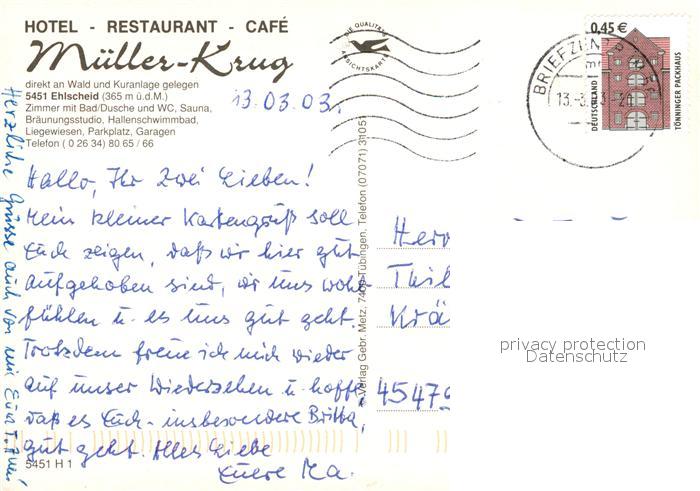 HOTEL - RESTAURANT - CAFÉ
Müller-Krug
direkt an Wald und Kuranlage gelegen
5451 Ehlscheid (365 m ü.d.M.)
Zimmer mit Bad/Dusche und WC, Sauna,
Bräunungsstudio, Hallenschwimmbad,
Liegewiesen, Parkplatz, Garagen
Telefon ( 0 26 34) 80 65 / 66
13.03.03.
DIE QUALITÄTS
ANSICHTSKARTE
BRIEFZENTR
13.-3.03-21
0,45 €
DEUTSCHLAND
TÖNNINGER PACKHAUS
Hallo, Ihr zwei Lieben!
Mein kleiner Kartengruß soll
Euch zeigen, daß wir hier gut
aufgehoben sind, wir uns wohl
fühlen u. es uns gut geht.
Trotzdem freue ich mich wieder
auf unser Wiedersehen u. hoffe,
daß es Euch - insbesondere Britta,
gut geht. Alles Liebe
Euere Ma.
Herzliche Grüsse auch von mir Eure T.
Verlag Gebr. Metz, 7400 Tübingen, Telefon (07071) 31051
Herr
Thil
Krä
4547
5451 H 1
privacy protection
Datenschutz